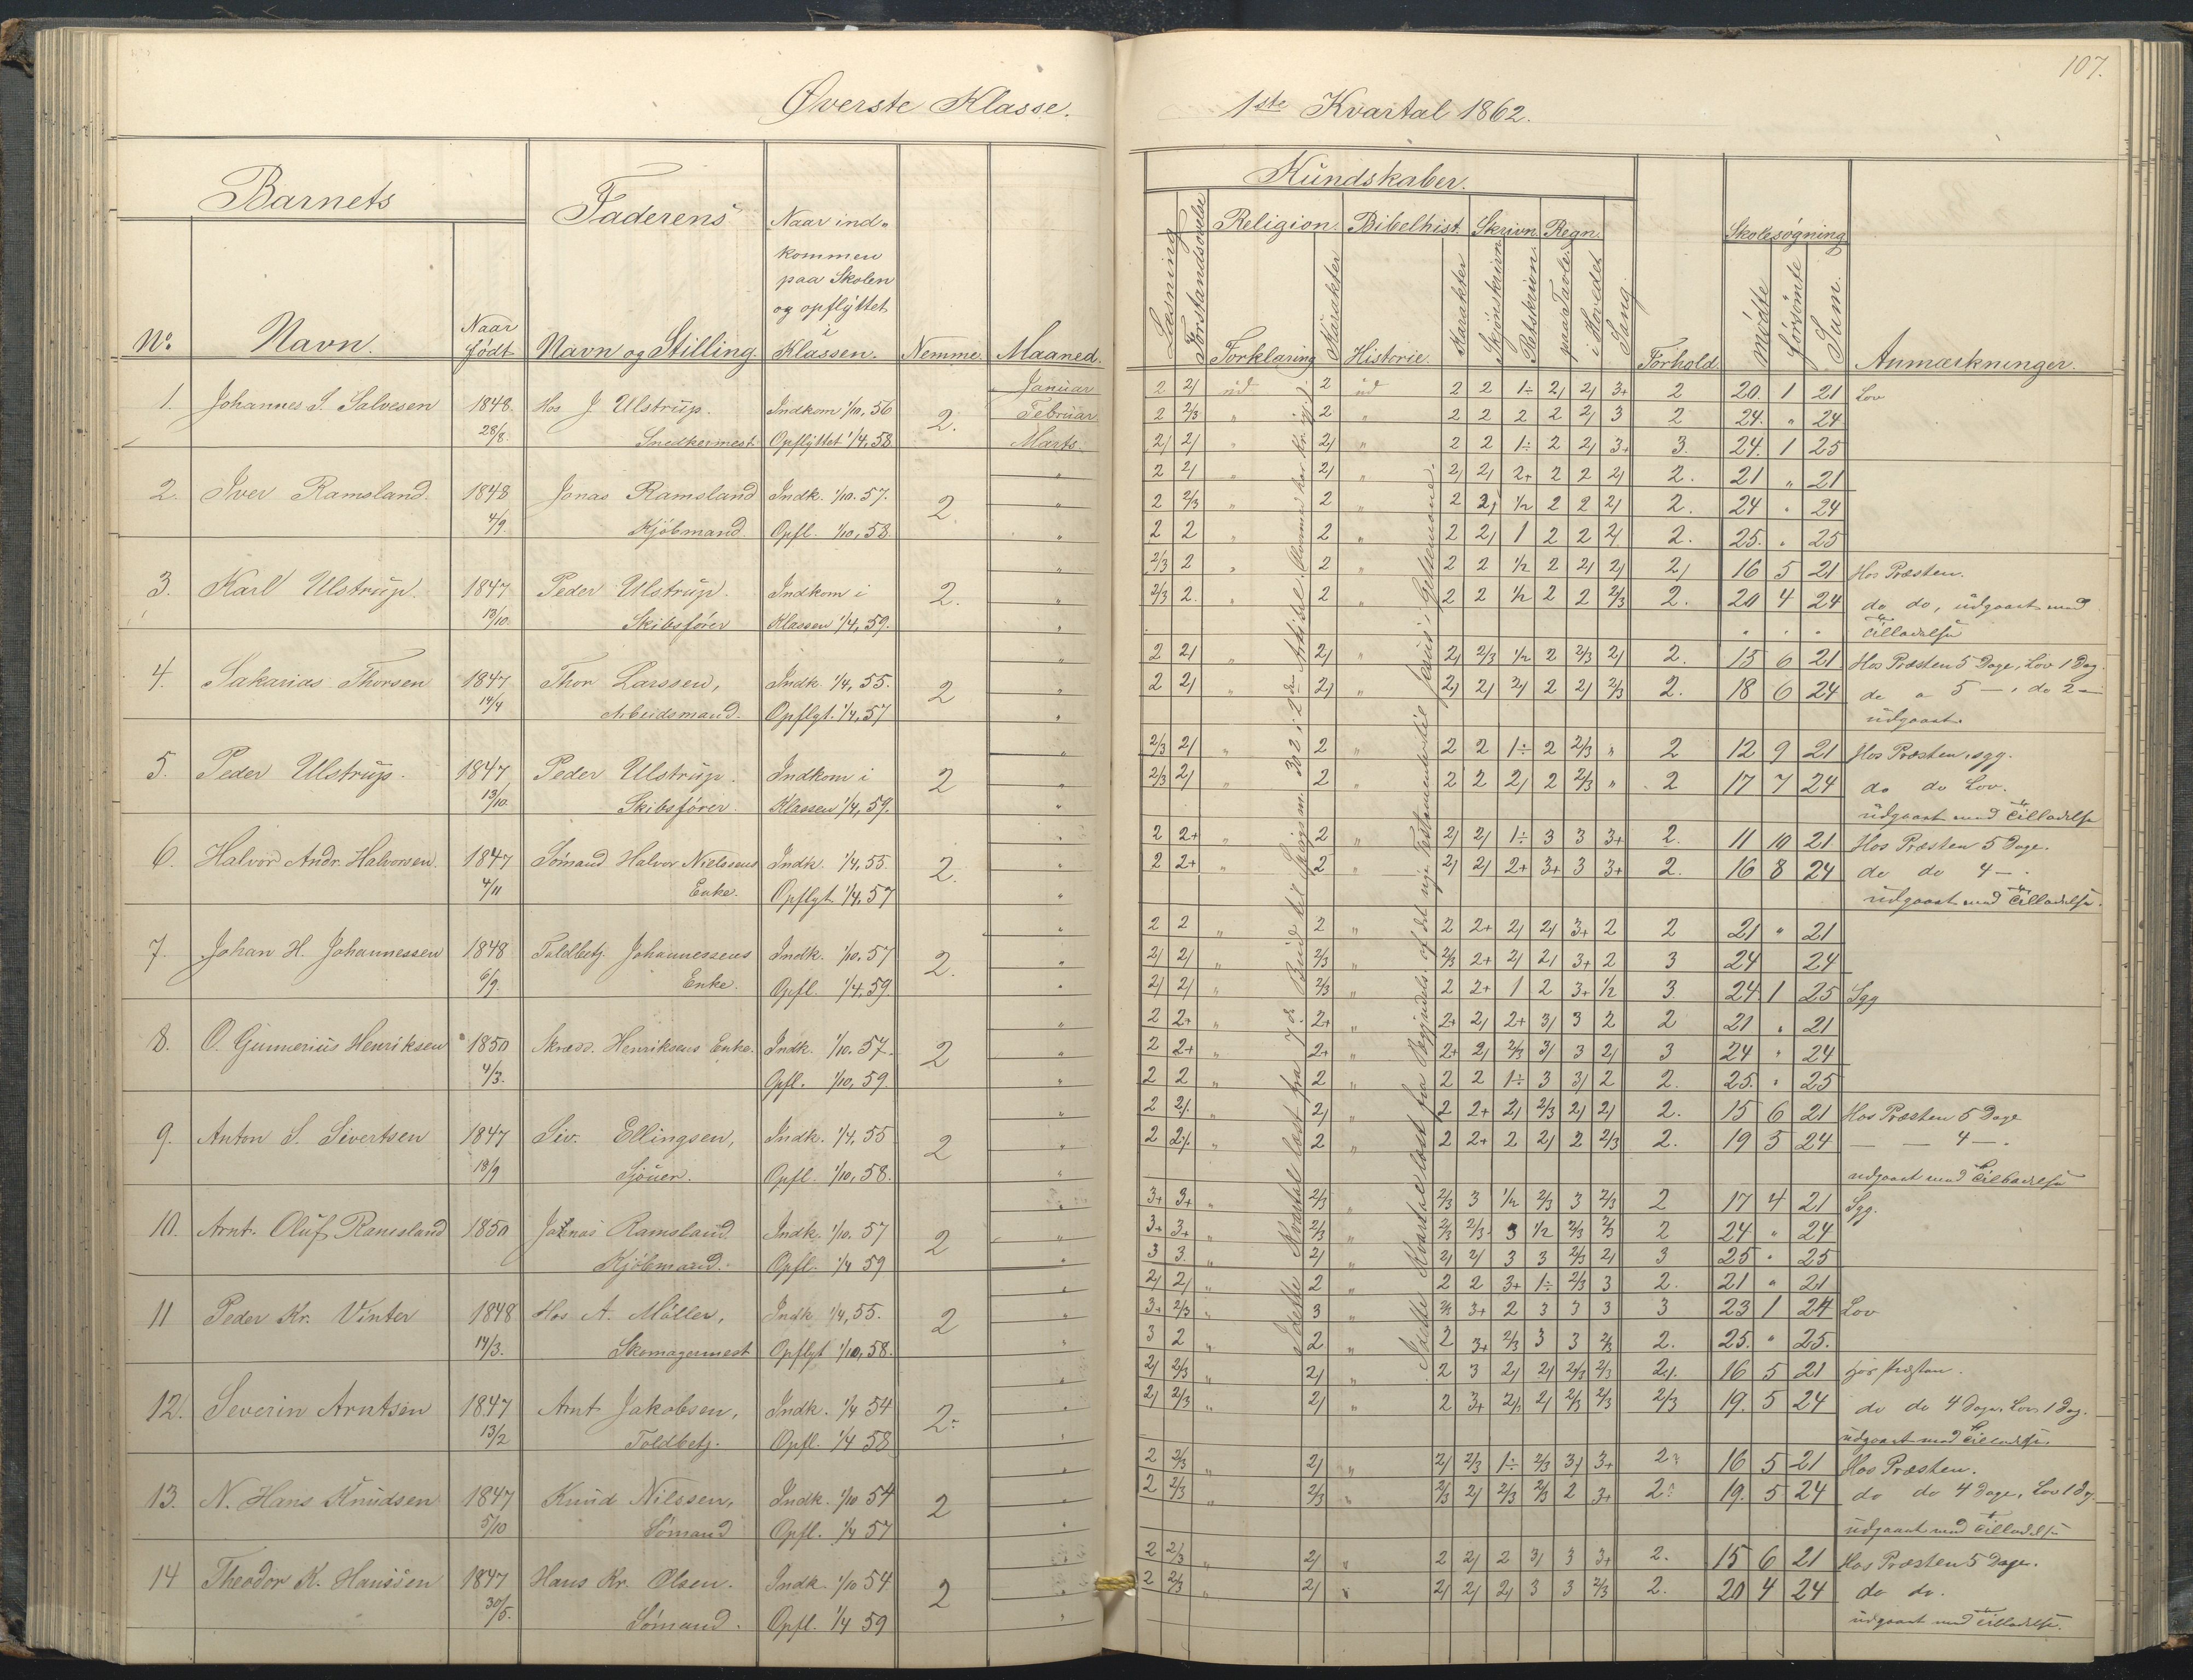 107.
Øverste Klasse. 1ste Kvartal 1862.
Barnets Faderens Naar ind-kommen paa Skolen og opflyttet i Klassen. Nemme. Maaned. Kundskaber. Forhold. Skolesøgning Anmærkninger.
No. Navn. Naar født Navn og Stilling. Læsning Forstandsøvelse Religion. Forklaring Karakter Bibelhist. Historie. Karakter Skrivn. Skjönskrivn. Retskrivn. Regn. paa Tavler i Hovedet Sang mødte forsømte Sum.
1. Johannes S. Salvesen 1848. Hos J Ulstrup. Indkom 1/10, 56 2. Januar 2 2/ ud 2 ud 2 2 1÷ 2/ 2/ 3+ 2 20. 1 21 Lov
28/8. Snedkermest. Opflyttet 1/4, 58 Februar 2 2/3 " 2 " 2 2 2 2 2/ 3 2 24. " 24
Marts 2/ 2/ " 2/ " 2 2 1÷ 2 2/ 3+ 3. 24. 1 25
2. Iver Ramsland. 1848 Jonas Ramsland Indk. 1/10. 57. 2. " 2 2/ " 2/ " 2/ 2/ 2+ 2 2 2/ 2. 21 " 21
4/9. Kjøbmand. Opfl. 1/10, 58. " 2 2/3 " 2 " 2 2/ 1/2 2 2 2/ 2. 24 " 24
" 2 2 " 2 " 2 2/ 1 2 2 2/ 2. 25. " 25
3. Karl Ulstrup. 1847 Peder Ulstrup. Indkom i 2. " 2/3 2 " 2 " 2 2 1/2 2 2/ 2/ 2/ 16 5 21 Hos Præsten.
13/10. Skibsfører Klassen 1/4, 59. " 2/3 2. " 2 " 2 2 1/2 2 2 2/3 2. 20 4 24 do do, udgaaet med
Tilladelse
4. Sakarias Thorsen 1847 Thor Larssen, Indk. 1/4, 55. 2 " 2 2/ " 2/ " 2/ 2/3 1/2 2 2/3 2/ 2. 15 6 21 Hos Præsten 5 Dage, Lov 1 Dag.
14/4 Arbeidsmand. Opflyt. 1/4, 57 " 2 2/ " 2/ " 2/ 2/ 2/ 2 2/ 2/3 2. 18 6 24 do " 5 —, do 2 —
udgaaet.
5. Peder Ulstrup. 1847 Peder Ulstrup. Indkom i 2 " 2/3 2/ " 2 " 2 2 1÷ 2 2/3 " 2 12 9 21 Hos Præsten, syg.
13/10. Skibsfører. Klassen 1/4, 59. " 2/3 2/ " 2 " 2 2 2/ 2 2/3 " 2 17 7 24 do do Lov.
udgaaet med Tilladelse
6. Halvor Andr. Halvorsen. 1847 Sømand Halvor Nielssens Indk. 1/4, 55. 2. " 2 2+ " 2 " 2/ 2/ 1÷ 3 3 3+ 2. 11 10 21 Hos Præsten 5 Dage.
4/11 Enke. Opflyt. 1/4, 57 " 2 2+ " 2 " 2/ 2/ 2+ 3+ 3 3+ 2. 16 8 24 do do 4 —.
udgaaet med Tilladelse.
7. Johan H. Johannessen 1848 Toldbetj. Johannessens Indk. 1/10, 57 2. " 2 2 " 2 " 2 2+ 2/ 2/ 3+ 2 2 21 " 21
6/9. Enke. Opfl. 1/4, 59. " 2/ 2/ " 2/3 " 2/3 2+ 2/ 2/ 3+ 2 3 24 24
" 2/ 2/ " 2/3 " 2 2+ 1 2 3+ 1/2 3 24. 1 25 Syg
8. O. Gunnerius Henriksen 1850 Skræd. Henriksens Enke. Indk. 1/10. 57. 2 " 2 2+ " 2+ " 2+ 2/ 2+ 3/ 3 2 2 21 " 21
4/3. Opfl. 1/10, 59. " 2 2+ " 2+ " 2+ 2/ 2/3 3/ 3 2/ 3 24 " 24
" 2 2 " 2 " 2 2 1÷ 3 3/ 2 2. 25. " 25
9. Anton S. Sivertsen 1847 Siv. Ellingsen, Indk. 1/4, 55 2 " 2 2/ " 2/ " 2 2+ 2/ 2/3 2/ 2/ 2. 15 6 21 Hos Præsten 5 Dage
18/9 Sjöuer. Opfl. 1/10, 58. " 2 2/ " 2 " 2 2+ 2 2/ 2 2/3 2. 19 5 24 — — 4 —.
udgaaet med Tilladelse
10. Arnt. Oluf Ramsland 1850 Jonas Ramsland Indk. 1/10. 57 2 " 3+ 3+ " 2/3 " 2/3 3 1/2 2/3 3 2/3 2 17 4 21 Syg.
Kjøbmand. Opfl. 1/4 59 " 3+ 3+ " 2/3 " 2/3 2/3 3 1/2 2/3 2/3 2 24. " 24
" 3 3. " 2/ " 2/ 2/ 3 3 2/3 2/ 3 25 " 25
11 Peder Kr. Vinter 1848 Hos A. Møller, Indk 1/4, 55. 2 " 2/ 2/ " 2 " 2 2 3+ 1÷ 2/3 3 2. 21 " 21
14/3. Skomagermest Opflyt 1/10, 58. " 3+ 2/3 " 3 " 2/3 3+ 2 3 3 3 3 23 1 24 Lov
" 3 2 " 2 " 2 3+ 2/3 3 3 2/3 2. 25. " 25.
12. Severin Arntsen 1847 Arnt Jakobsen, Indk. 1/4 54 2. " 2/ 2/3 " 2/ " 2 3 2/ 2/ 2/3 2/3 2/. 16 5 21 hos Præsten.
13/2 Toldbetj. Opfl. 1/4 58 " 2/ 2/3 " 2/ " 2 3+ 2/ 2/ 2/3 2/3 2/3 19. 5 24 do do 4 Dage, Lov 1 Dag.
udgaaet med Tilladelse.
13. N. Hans Knudsen 1847 Knud Nilssen, Indk. 1/10 54 2 " 2 2/3 " 2/ " 2/ 2/3 1÷ 2/3 3/ 3+ 2. 16 5 21 Hos Præsten.
5/10 Sømand Opfl. 1/4 57 " 2 2/3 " 2/3 " 2/3 2/ 2/3 2/3 2 3+ 2. 19. 5 24 do do 4 Dage, Lov 1 Dg.
udgaaet med Tilladelse
14 Theodor K. Hanssen 1847 Hans Kr. Olsen. Indk. 1/10 54 2 " 2 2/3 " 2/ " 2 2/ 2 3/ 3 3+ 2. 15 6 21 Hos Præsten 5 Dage.
30/5. Sømand. Opfl. 1/4 59 " 2 2/3 " 2/ " 2/ 2/ 2/ 3 3 2/3 2. 20 4 24 do do.
udgaaet med Tilladelse.
I dette Kvartal læst fra 7de Bud til Spørgsm. 302 i 2den Artikel.
I dette Kvartal læst fra Begyndels. af det nye Testamente til Jesus i Getsemane.